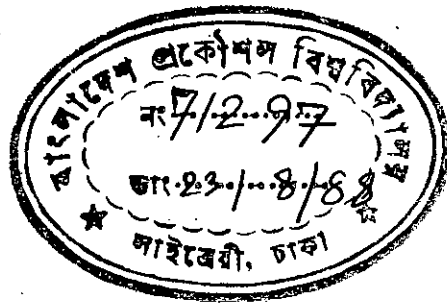 বাংলাদেশ প্রকৌশল বিশ্ববিদ্যালয়
নং 71297
তাং 23/8/88
লাইব্রেরী, ঢাকা